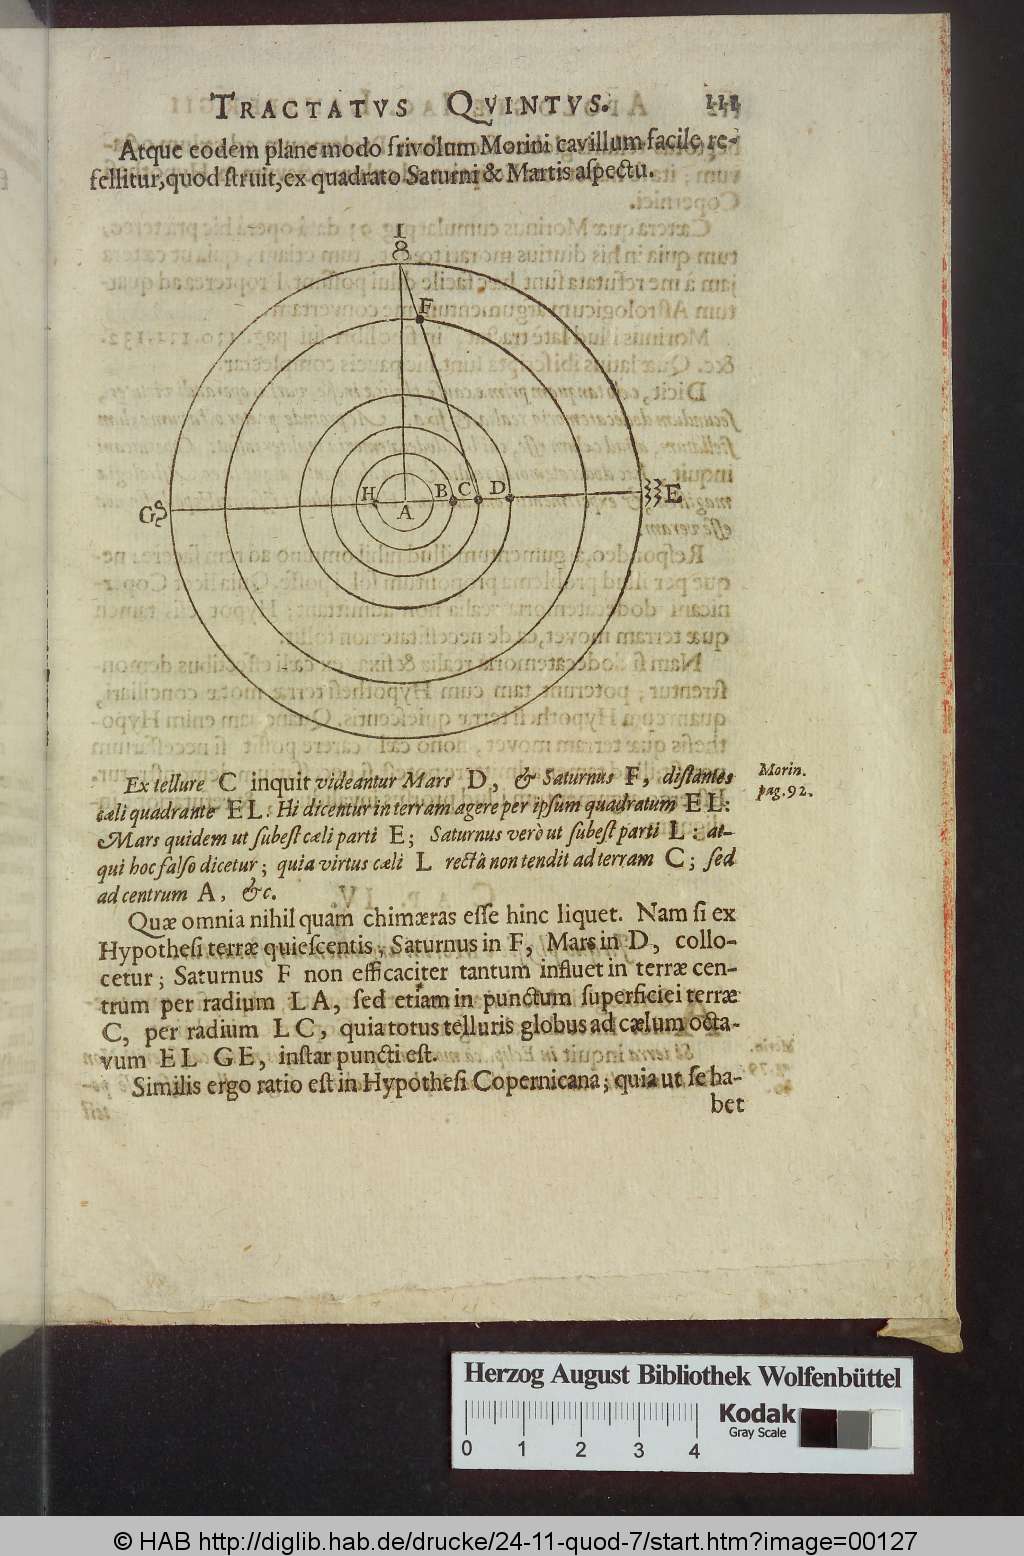 TRACTATVS QVINTVS. 111
Atque eodem plane modo frivolum Morini cavillum facile re-
fellitur, quod ſtruit, ex quadrato Saturni & Martis aſpectu.
I
8
F
H B C D
A
G E
Ex tellure C inquit videantur Mars D, & Saturnus F, diſtantes
cæli quadrante EL: Hi dicentur in terram agere per ipſum quadratum EL:
Mars quidem ut ſubeſt cæli parti E; Saturnus verò ut ſubeſt parti L: at-
qui hoc falſo dicetur; quia virtus cæli L rectà non tendit ad terram C; ſed
ad centrum A, &c.
Morin.
pag. 92.
Quæ omnia nihil quàm chimæras eſſe hinc liquet. Nam ſi ex
Hypotheſi terræ quieſcentis, Saturnus in F, Mars in D, collo-
cetur; Saturnus F non efficaciter tantum influet in terræ cen-
trum per radium LA, ſed etiam in punctum ſuperficiei terræ
C, per radium LC, quia totus telluris globus ad cælum octa-
vum EL GE, inſtar puncti eſt.
Similis ergo ratio eſt in Hypotheſi Copernicana; quia ut ſe ha-
bet
Herzog August Bibliothek Wolfenbüttel
Kodak
Gray Scale
0 1 2 3 4
© HAB http://diglib.hab.de/drucke/24-11-quod-7/start.htm?image=00127